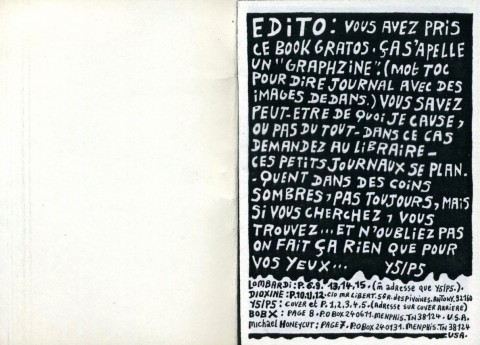 EDITO: VOUS AVEZ PRIS
CE BOOK GRATOS. ÇA S'APELLE
UN "GRAPHZINE". (MOT TOC
POUR DIRE JOURNAL AVEC DES
IMAGES DEDANS.) VOUS SAVEZ
PEUT-ETRE DE QUOI JE CAUSE,
OU PAS DU TOUT- DANS CE CAS
DEMANDEZ AU LIBRAIRE-
CES PETITS JOURNAUX SE PLAN.
-QUENT DANS DES COINS
SOMBRES, PAS TOUJOURS, MAIS
SI VOUS CHERCHEZ, VOUS
TROUVEZ... ET N'OUBLIEZ PAS
ON FAIT ÇA RIEN QUE POUR
VOS YEUX... Y5/P5
LOMBARDI: P. 6.9. 13,14,15. (m̂ adresse que Y5/P5.).
DIOXINE: P.10.11,12. C/O MR GIBERT. 5 R. des PIVOINES. ANTONY. 92160
Y5/P5: COVER et P. 1,2,3,4,5. (adresse sur COVER ARRIERE)
BOBX: PAGE 8. P.O BOX 240611. MEMPHIS. TN 38124. U.S.A.
Michael HONEYCUT: PAGE 7. P.O BOX 240131. MEMPHIS. TN 38124
USA.